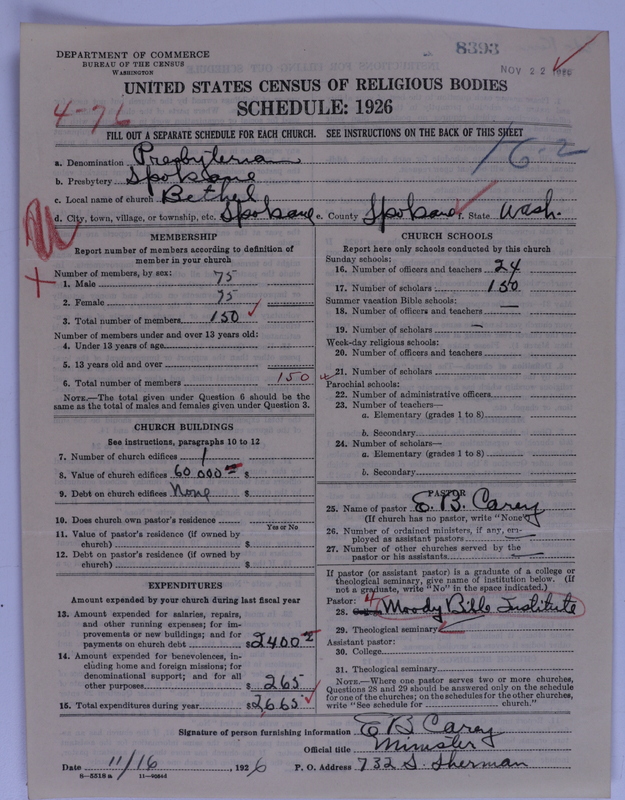 8393
NOV 22
DEPARTMENT OF COMMERCE
BUREAU OF THE CENSUS
WASHINGTON
UNITED STATES CENSUS OF RELIGIOUS BODIES
SCHEDULE: 1926
4-76
FILL OUT A SEPARATE SCHEDULE FOR EACH CHURCH. SEE INSTRUCTIONS ON THE BACK OF THIS SHEET
16-2
a. Denomination Presbyterian
b. Presbytery Spokane
c. Local name of church Bethel
d. City, town, village, or township, etc. Spokane e. County Spokane f. State Wash.
MEMBERSHIP
Report number of members according to definition of
member in your church
Number of members, by sex:
1. Male 75
2. Female 75
3. Total number of members 150
Number of members under and over 13 years old:
4. Under 13 years of age
5. 13 years old and over
6. Total number of members 150
NOTE.—The total given under Question 6 should be
same as the total of males and females given under Question 3.
CHURCH BUILDINGS
See instructions, paragraphs 10 to 12
7. Number of church edifices 1
8. Value of church edifices 60 000 $
9. Debt on church edifices None $
10. Does church own pastor's residence
Yes or No
11. Value of pastor's residence (if owned by
church) $
12. Debt on pastor's residence (if owned by
church) $
EXPENDITURES
Amount expended by your church during last fiscal year
13. Amount expended for salaries, repairs,
and other running expenses; for im-
provements or new buildings; and for
payments on church debt $2400
14. Amount expended for benevolences, in-
cluding home and foreign missions; for
denominational support; and for all
other purposes $ 265
15. Total expenditures during year $2665
CHURCH SCHOOLS
Report here only schools conducted by this church
Sunday schools:
16. Number of officers and teachers 24
17. Number of scholars 150
Summer vacation Bible schools:
18. Number of officers and teachers —
19. Number of scholars —
Week-day religious schools:
20. Number of officers and teachers
21. Number of scholars
Parochial schools:
22. Number of administrative officers
23. Number of teachers—
a. Elementary (grades 1 to 8)
b. Secondary
24. Number of scholars—
a. Elementary (grades 1 to 8)
b. Secondary
PASTOR
25. Name of pastor E. B. Carey
(If church has no pastor, write "None")
26. Number of ordained ministers, if any, em-
ployed as assistant pastors
27. Number of other churches served by the
pastor or his assistants
If pastor (or assistant pastor) is a graduate of a college or
theological seminary, give name of institution below. (If
not a graduate, write "No" in the space indicated.)
Pastor: 4
28. Moody Bible Institute
29. Theological seminary
Assistant pastor:
30. College
31. Theological seminary
NOTE.—Where one pastor serves two or more churches,
Questions 28 and 29 should be answered only on the schedule
for one of the churches; on the schedules for the other churches,
write "See schedule for church."
Signature of person furnishing information E B Carey
Official title Minister
Date 11/16 1926 P. O. Address 732 S. Sherman
8-5318 a 11-9054d